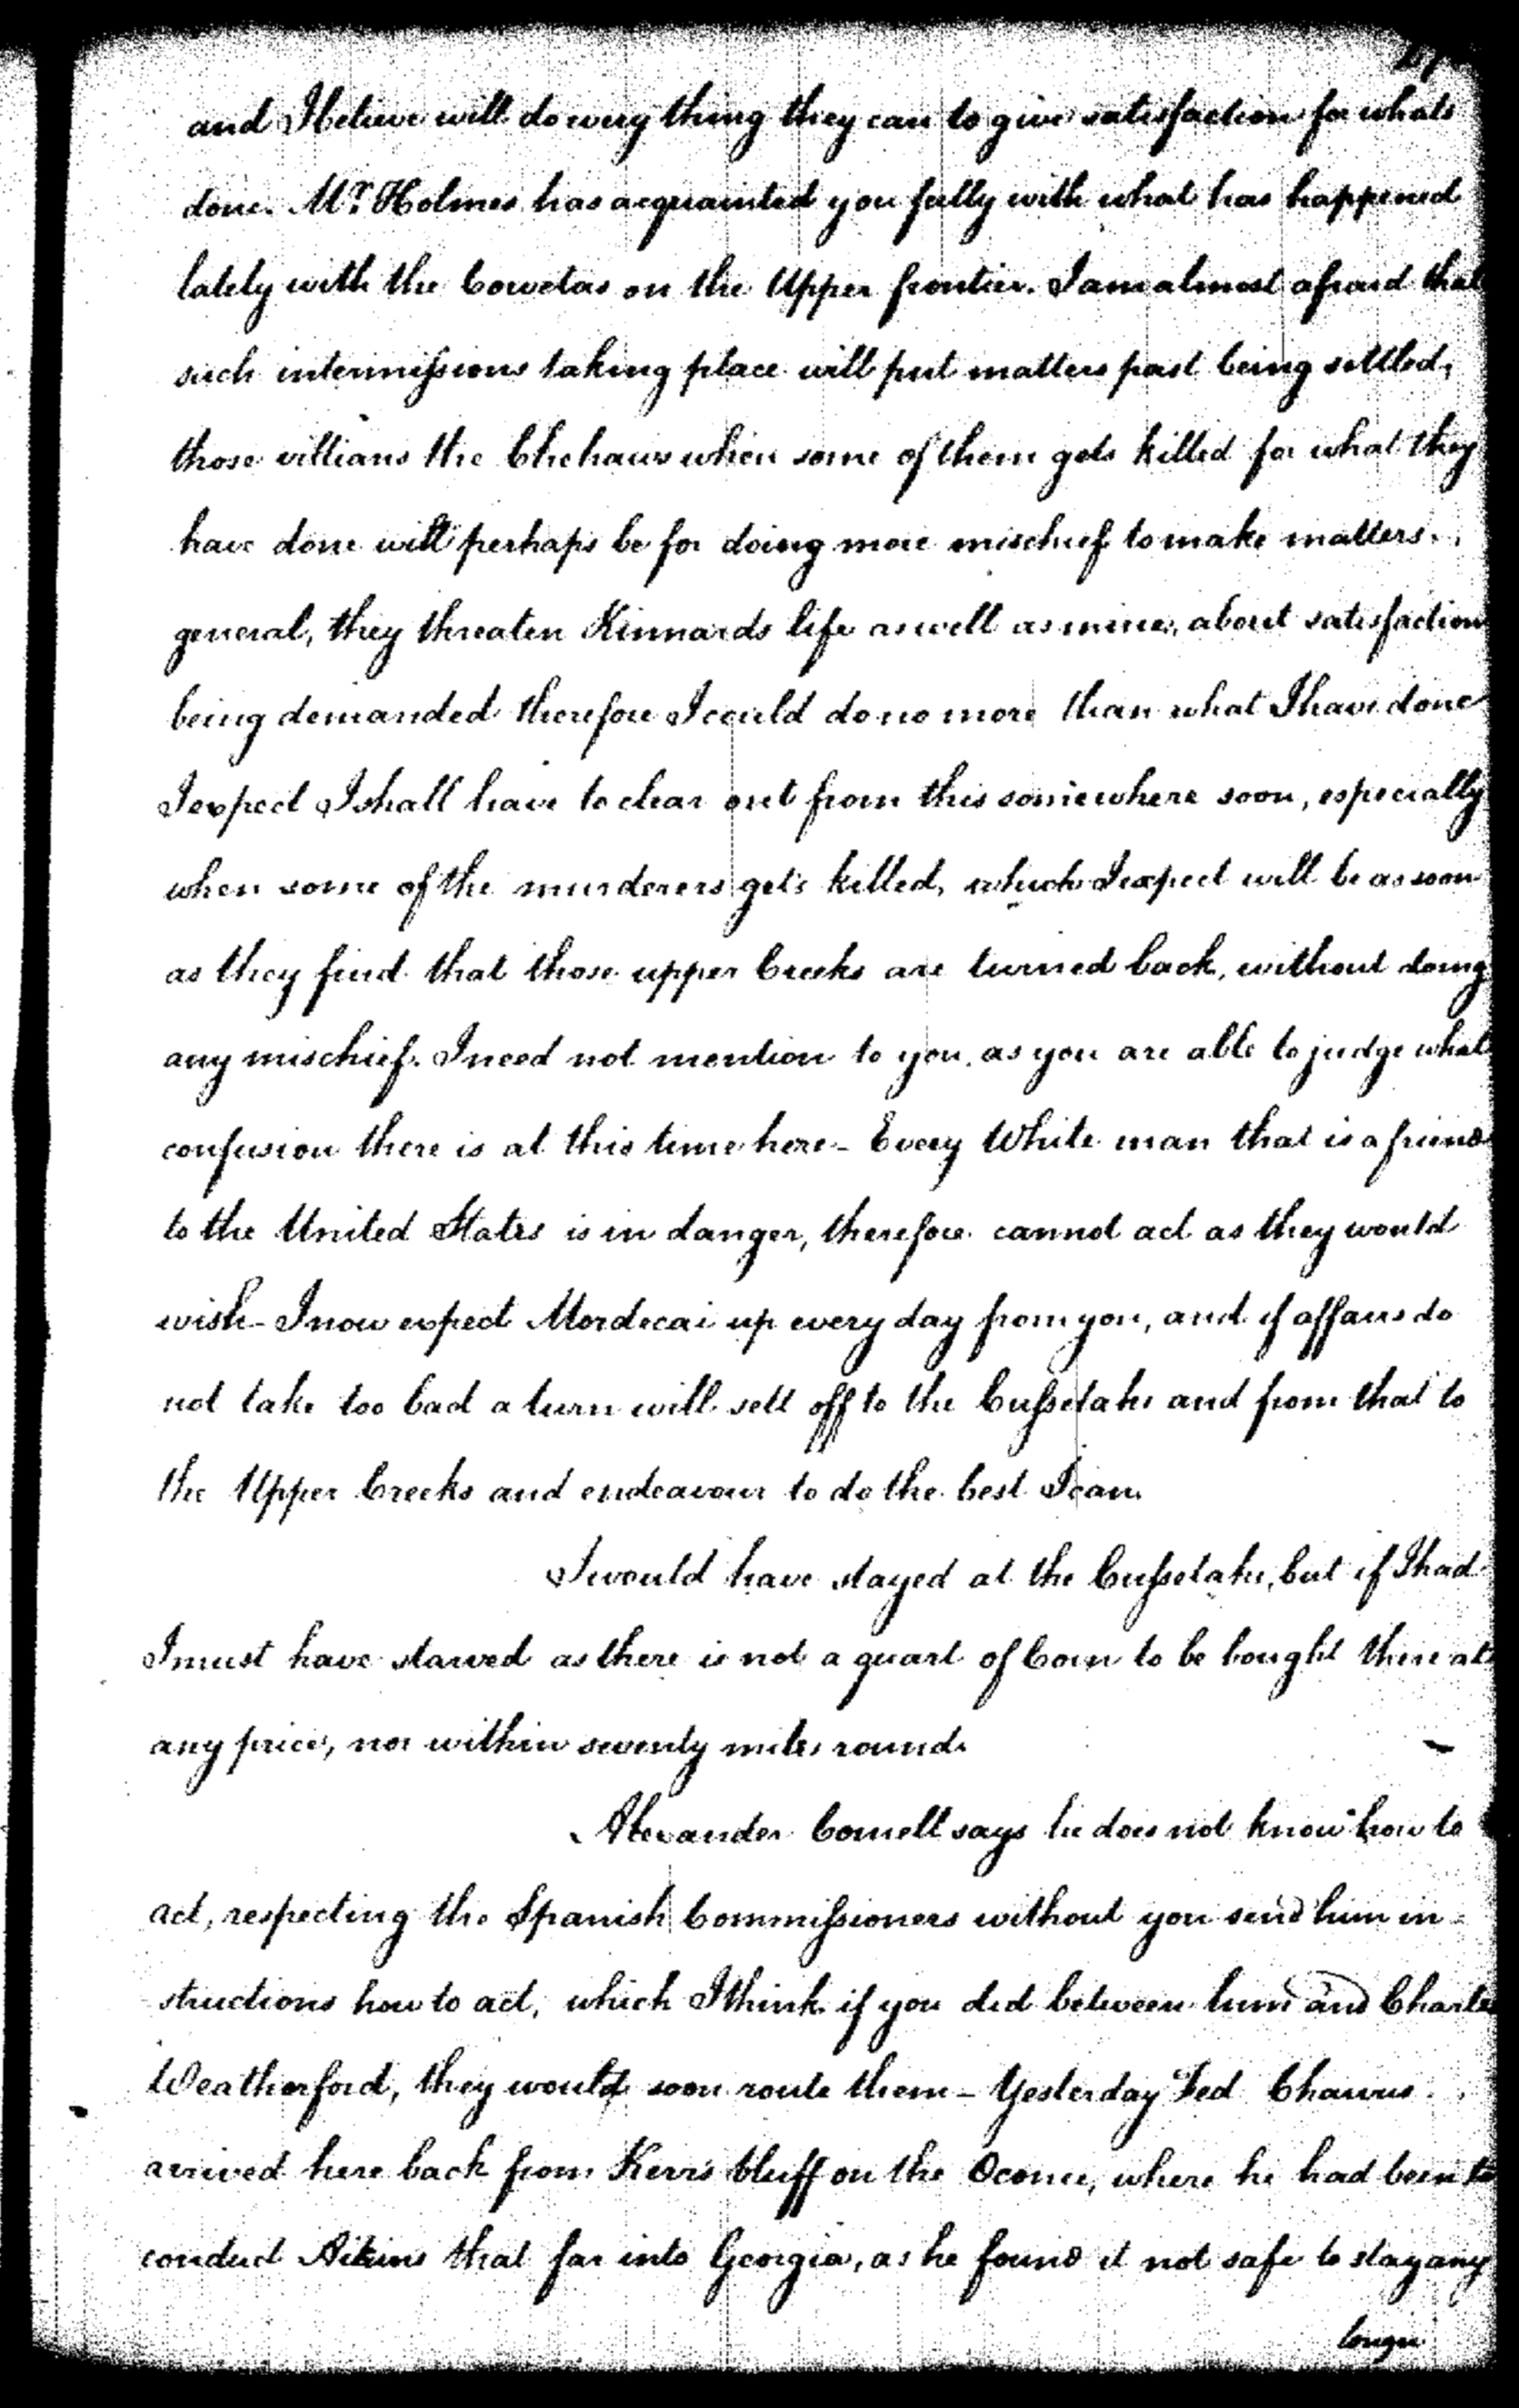 and I believe will do every thing they can to give satisfaction for whats
done. Mr. Holmes has acquainted you fully with what has happened
lately with the Cowetas on the Upper frontier. I am almost afraid that
such intermissions taking place will put matters past being settled,
those villians the Chehaws when some of them gets killed for what they
have done will perhaps be for doing more mischief to make matters
general, they threaten Kinnards life as well as mine, about satisfaction
being demanded therefore I could do no more than what I have done
I expect I shall have to clear out from this somewhere soon, especially
when some of the murderers get's killed, which I expect will be as soon
as they find that those upper Creeks are turned back, without doing
any mischief. I need not mention to you, as you are able to judge what
confusion there is at this time here - Every White man that is a friend
to the United States is in danger, therefore cannot act as they would
wish - I now expect Mordecai up every day from you, and if affairs do
not take too bad a turn will sett off to the Cussetahs and from that to
the Upper Creeks and endeavour to do the best I can.
I would have stayed at the Cussetahs, but if I had
I must have starved as there is not a quart of Corn to be bought there at
any price, nor within seventy miles round.
Alexander Cornell says he does not know how to
act, respecting the Spanish Commissioners without you send him in-
structions how to act, which I think if you did between him and Charles
Weatherford, they would soon route them - Yesterday Ted
arrived here back from Kerr's bluff on the Oconee, where he had been to
conduct Aikins that far into Georgia, as he found it not safe to stay any
longer